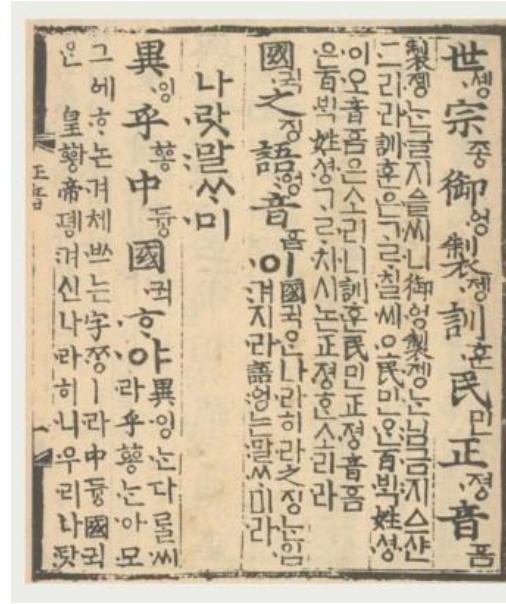 世솅宗종御ᅌᅥᆼ製졩訓훈民민正졍音ᅙᅳᆷ
製졩는글지ᅀᅳᆯ씨니御ᅌᅥᆼ製졩는님금지ᅀᅳ샨
그리라訓훈은ᄀᆞᄅᆞ칠씨오民민ᄋᆞᆫ百ᄇᆡᆨ姓셩
이오音ᅙᅳᆷ은소리니訓훈民민正졍音ᅙᅳᆷ
은百ᄇᆡᆨ姓셩ᄀᆞᄅᆞ치시논正졍ᄒᆞᆫ소리라
國귁之징語ᅌᅥᆼ音ᅙᅳᆷ이
國귁ᄋᆞᆫ나라히라之징ᄂᆞᆫ입
겨지라語ᅌᅥᆼ는말ᄊᆞ미라
나랏말ᄊᆞ미
異잉乎ᅘᅩᆼ中듀ᇰ國귁ᄒᆞ야
異잉는다ᄅᆞᆯ씨
라乎ᅘᅩᆼ는아모
그ᅌᅦᄒᆞ논겨체ᄡᅳ는字ᄍᆞᆼㅣ라中듀ᇰ國귁
ᄋᆞᆫ皇ᅘᅪᇰ帝뎽겨신나라히니우리나랏
正音
一